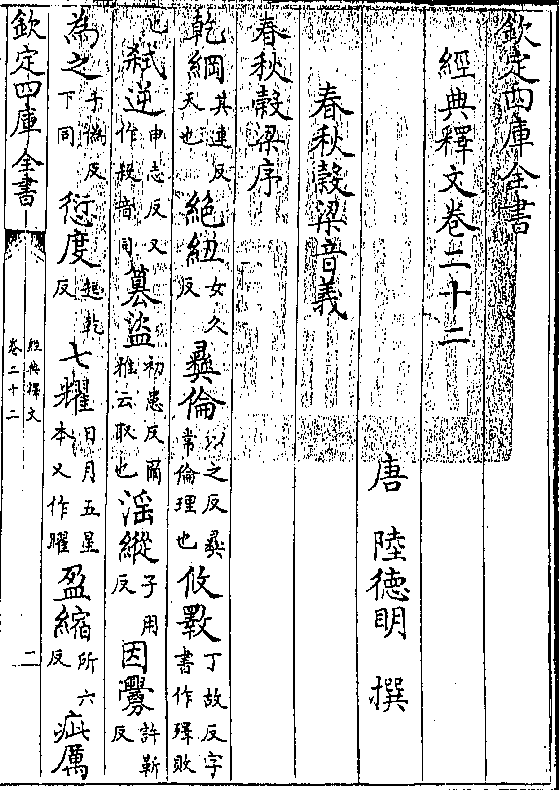 欽定四庫全書
經典釋文卷二十二
唐 陸德明 撰
春秋穀梁音義
春秋穀梁序
乾綱其連反天也 絶紐女久反 彞倫以之反彞常倫理也 攸斁丁故反字書作殬敗
也 弑逆申志反又作殺音同 篡盜初患反爾雅云取也 淫縱子用反 因釁許靳反
為之于偽反下同 愆度起乾反 七耀日月五星本又作曜 盈縮所六反 疵厲
欽定四庫全書
經典釋文
卷二十二
一